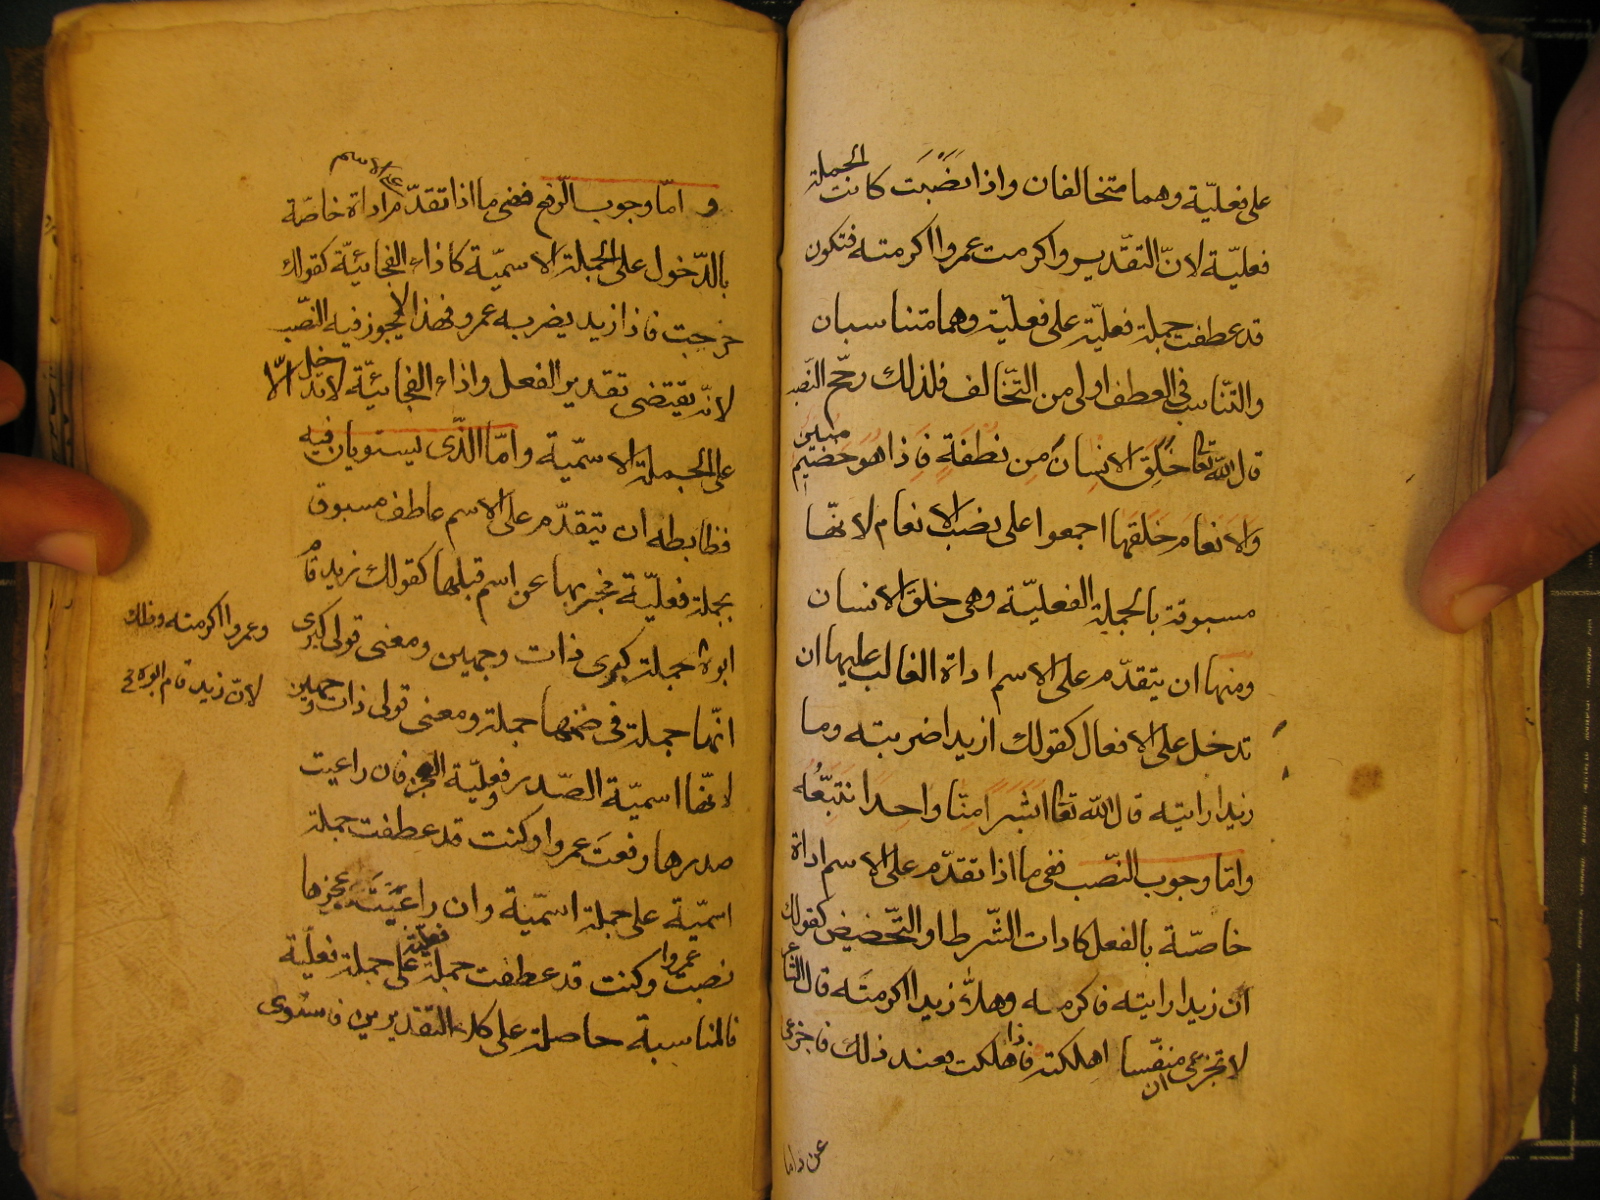 على فعليّة وهما متخالفان واذا نصبت كانت الجملة
فعليّة لانّ التقدير واكرمت عمروا اكرمته فتكون
قد عطفت جملة فعليّة على فعليّة وهما متناسبان
والتّناسب فى العطف اولى من التّخالف فلذلك رجّح النّصب
قال الله تعا خلق الانسان من نطفة فاذا هو خصيم مبين
والانعام خلقها اجمعوا على نصب الانعام لانّها
مسبوقة بالجملة الفعليّة وهى خلق الانسان
ومنها ان يتقدّم على الاسم اداة الغالب عليها ان
تدخل على الافعال كقولك ازيدا ضربته وما
زيدا رايته قال الله تعا ابشرا منّا واحدا نتّبعه
وامّا وجوب النّصب ففى ما اذا تقدّم على الاسم اداة
خاصّة بالفعل كادات الشّرط او التّحضيض كقولك
ان زيدا رايته فاكرمه وهلّا زيدا اكرمته قال الشاعر
لا تجزعى ان منفسا اهلكته فاذا هلكت فعند ذلك فاجزعى
وامّا
وامّا وجوب الرّفع ففى ما اذا تقدّم على الاسم اداة خاصّة
بالدّخول على الجملة الاسميّة كاذاء الفجائيّة كقولك
خرجت فاذا زيد يضربه عمرو فهذا لا يجوز فيه النّصب
لانّه يقتضى تقدير الفعل واذاء الفجائيّة لا تدخل الّا
على الجملة الاسميّة وامّا الّذى يستويان فيه
فظابطه ان يتقدّم على الاسم عاطف مسبوق
بجملة فعليّة مخبر بها عن اسم قبلها كقولك زيد قام
ابوه وعمروا اكرمته وذلك
لانّ زيد قام ابوه
جملة كبرى ذات وجهين ومعنى قولى كبرى
انّها جملة فى ضمنها جملة ومعنى قولى ذات وجهين
لانّها اسميّة الصّدر وفعليّة العجز فان راعيت
صدرها رفعت عمروا وكنت قد عطفت جملة
اسميّة على جملة اسميّة وان راعيت عجزها
نصبت عمروا وكنت قد عطفت جملة فعليّة على جملة فعليّة
فالمناسبة حاصلة على كلا التقديرين فاستوى